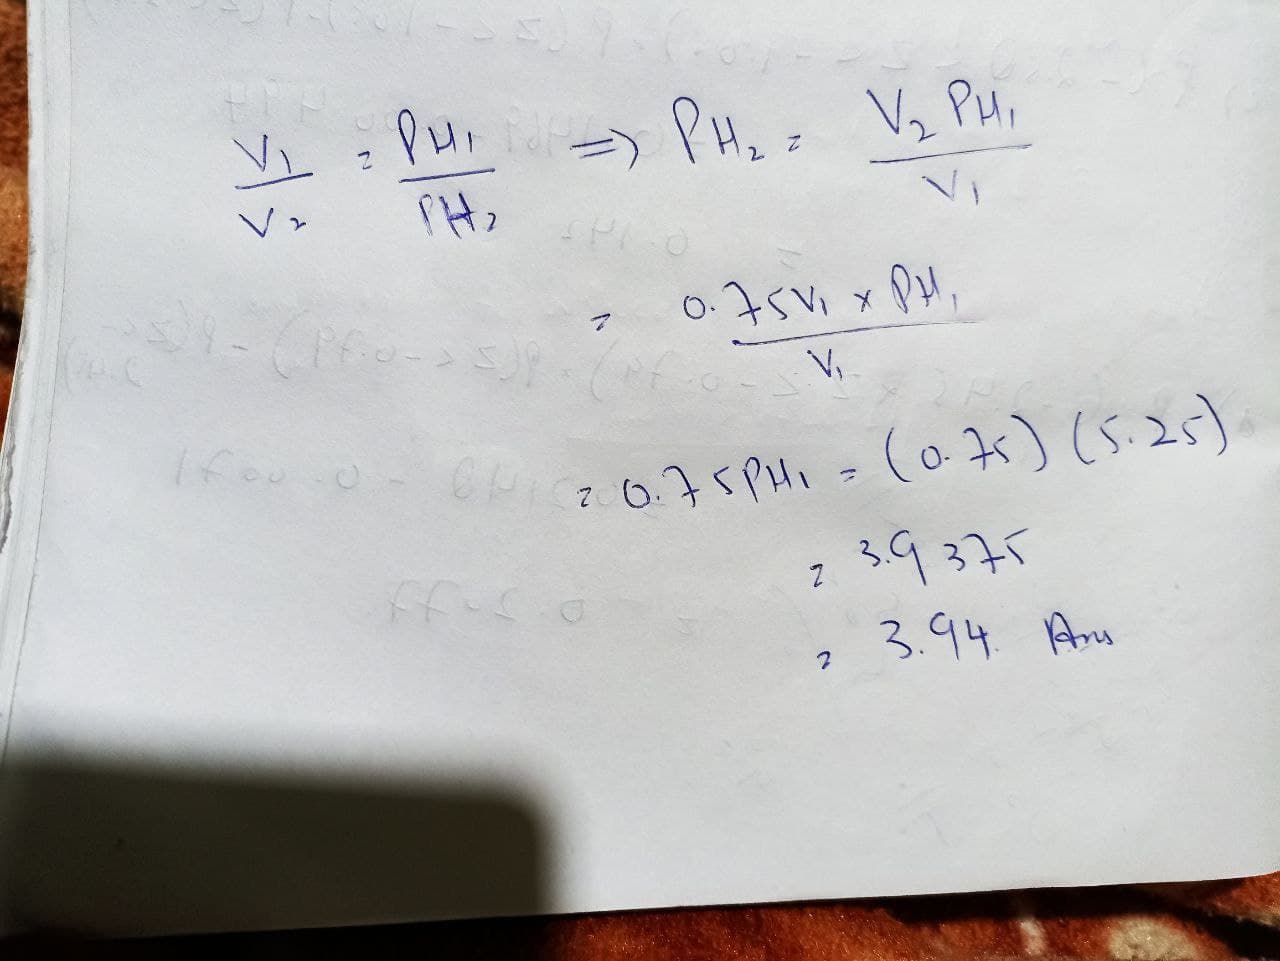 V₁/V₂ = PH₁/PH₂ => PH₂ = V₂ PH₁/V₁
= 0.75V₁ x PH₁/V₁
= 0.75PH₁ = (0.75) (5.25)
= 3.9375
= 3.94. Ans